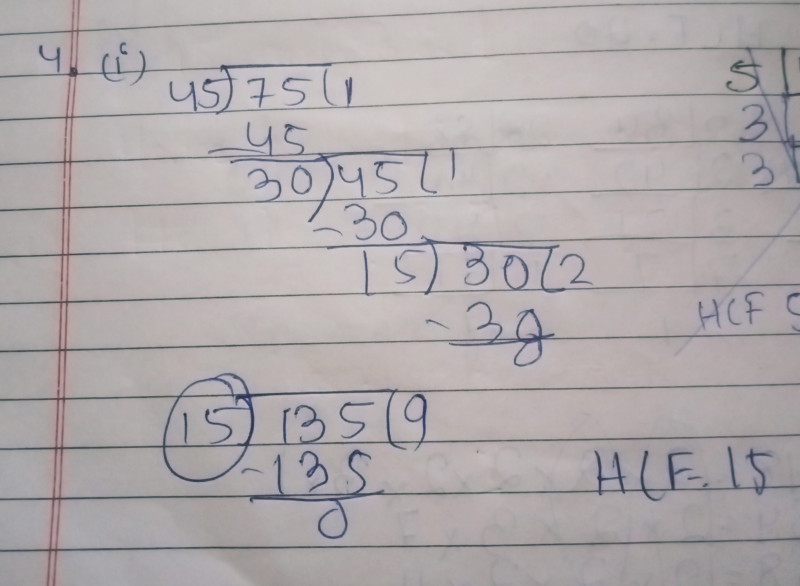 4. (i)
45)75(1
-45
30)45(1
-30
15)30(2
-30
0
15)135(9
-135
0
HCF=15
5
3
3
HCF